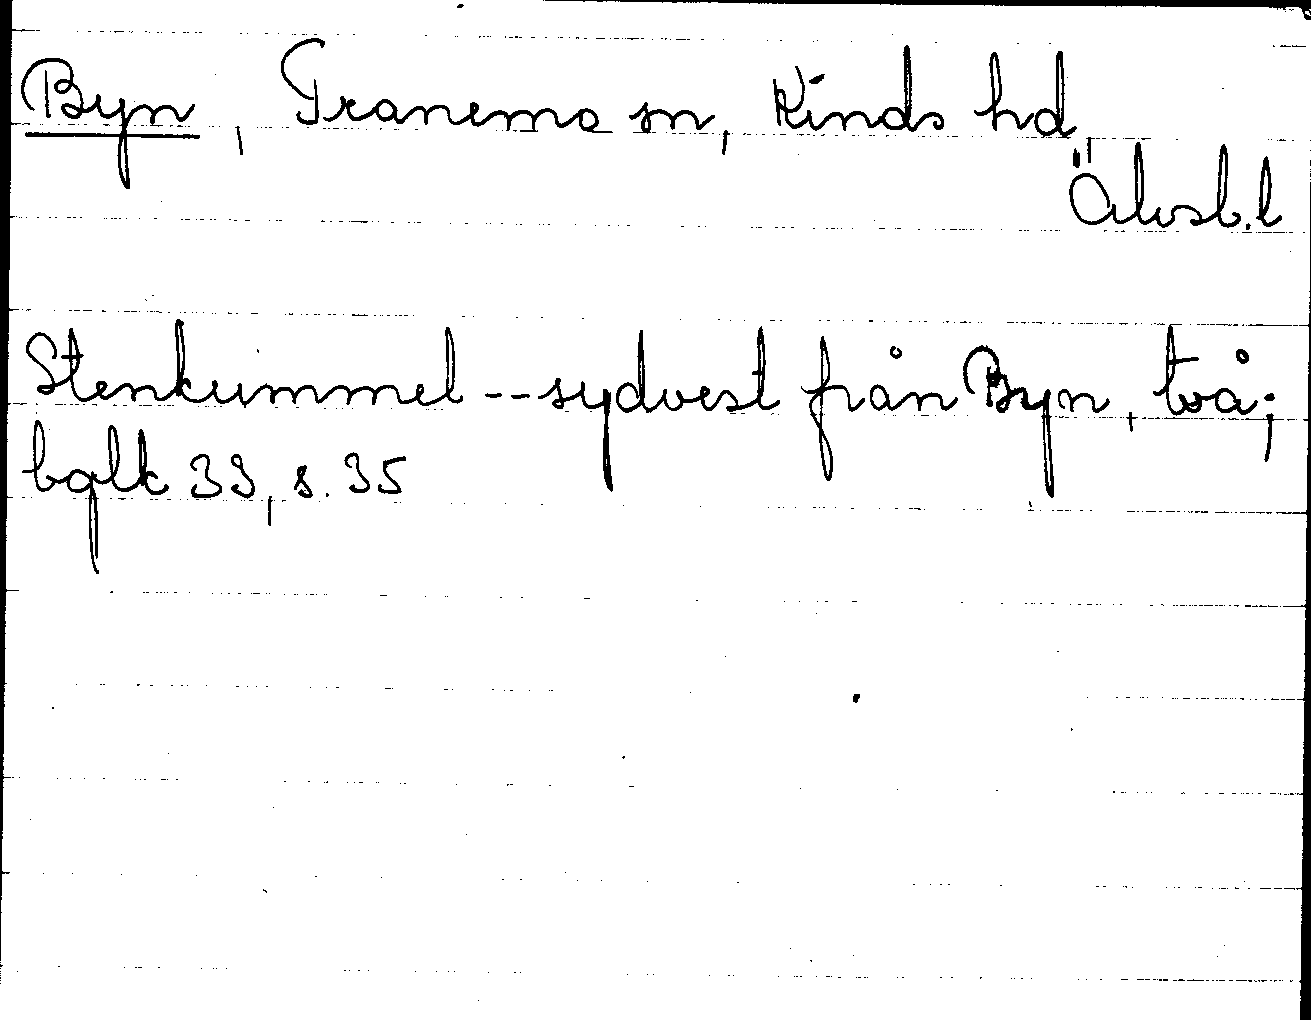 Byn, Tranemo sn, Kinds hd,
Älvsb.l
Stenkummel -- sydvest från Byn, två;
bglk 33, s. 35